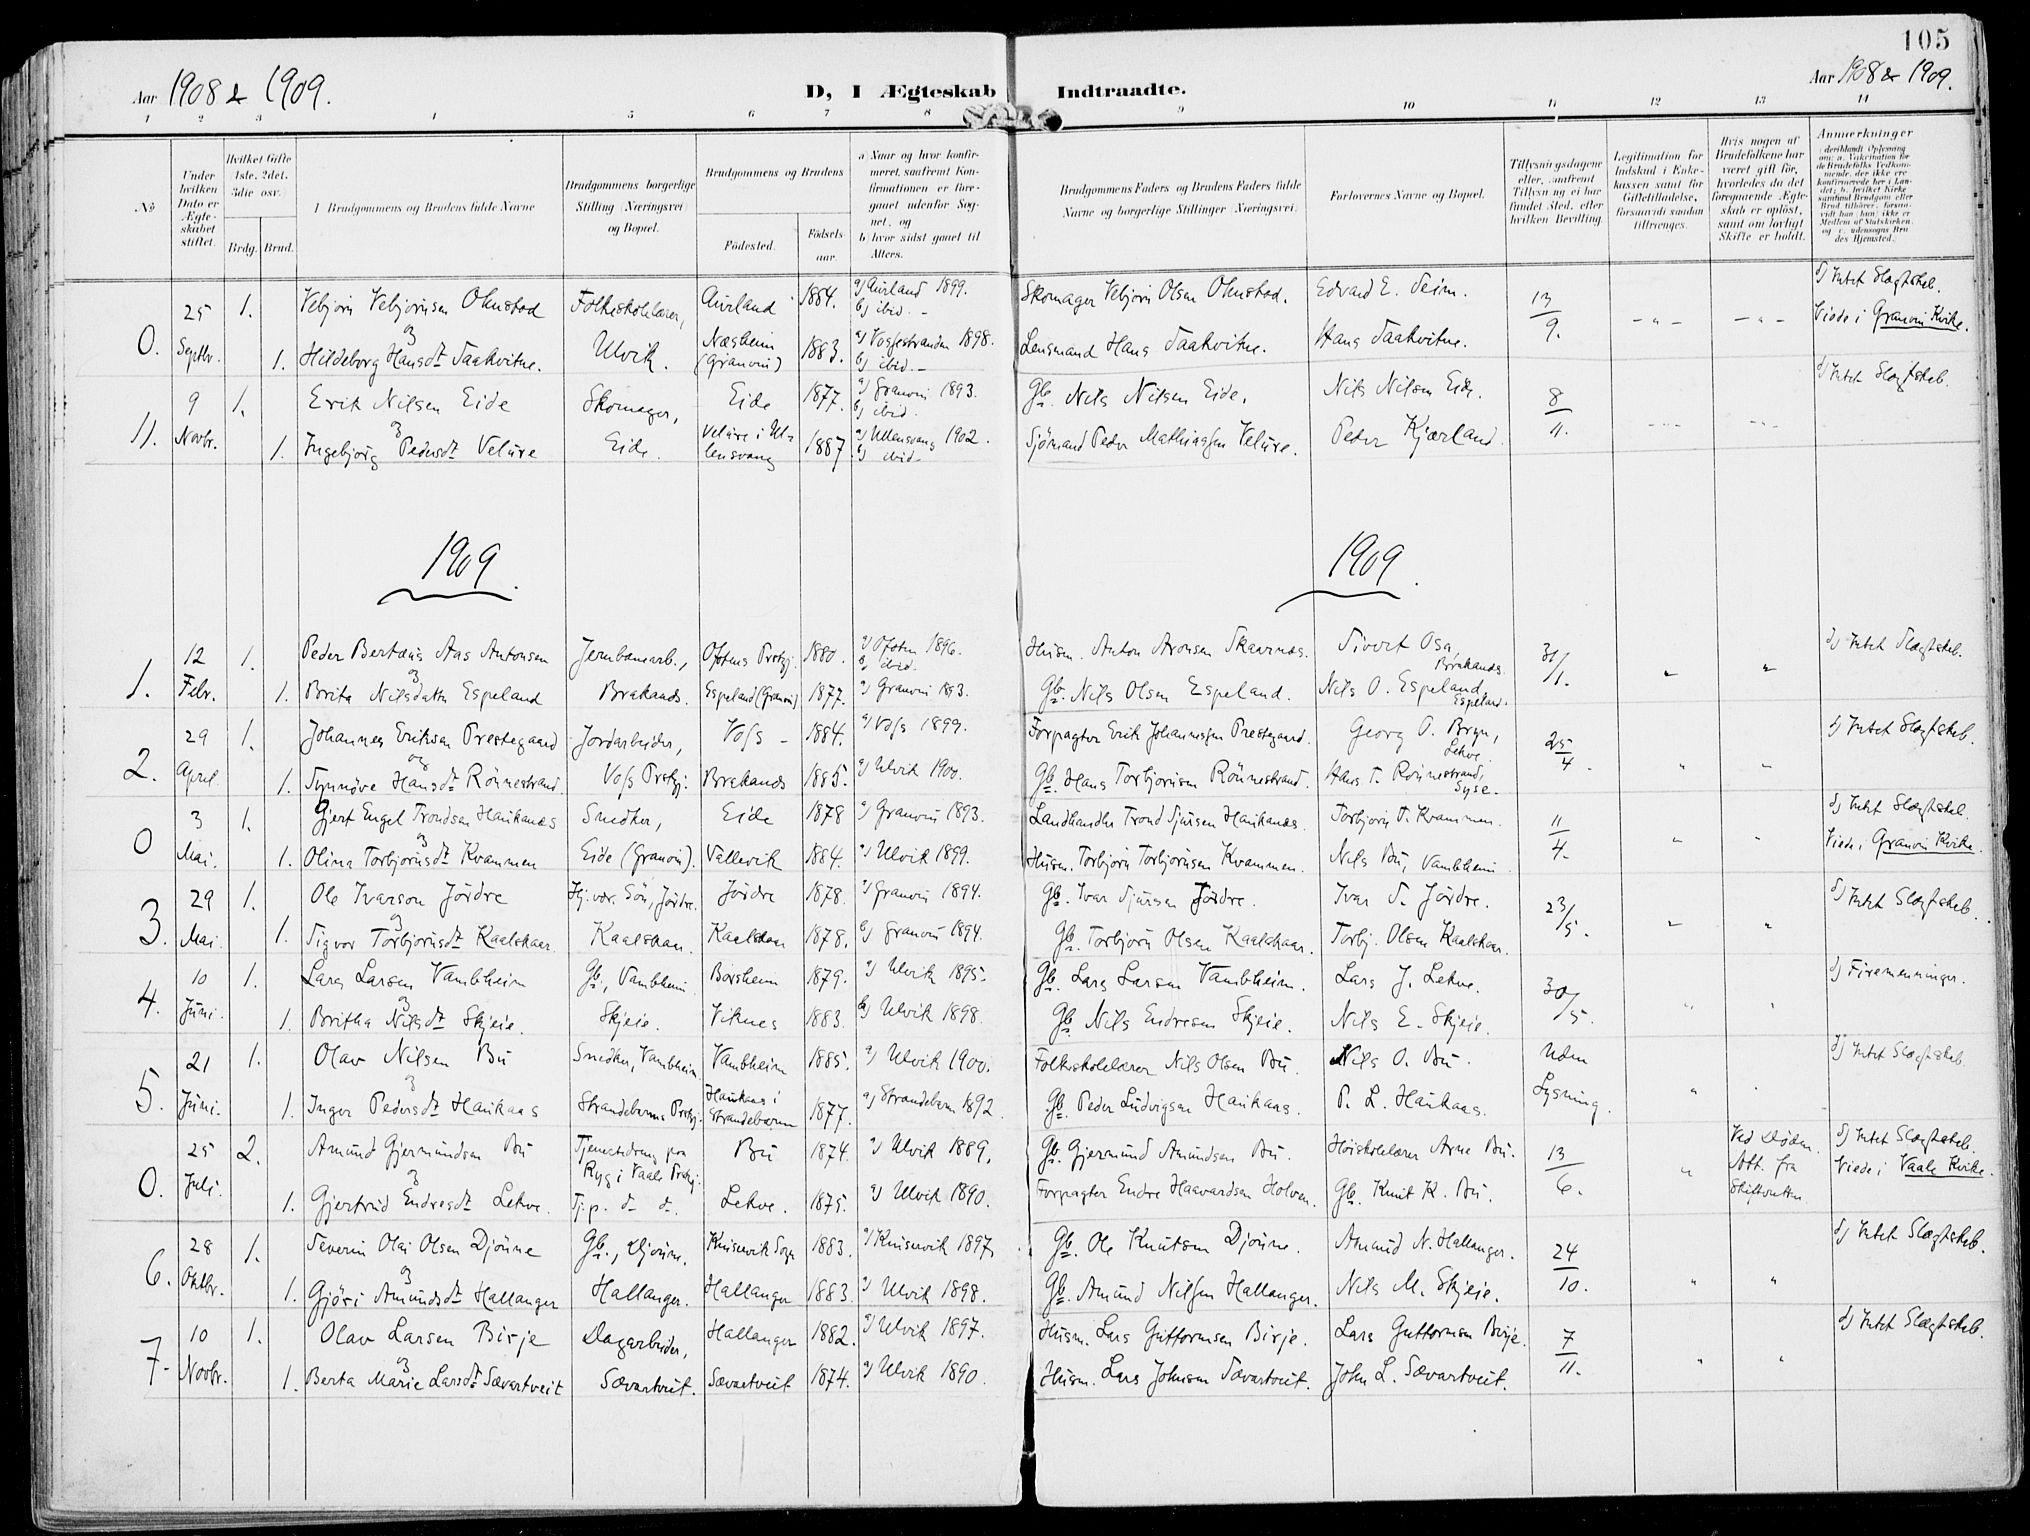 105
Aar 1908 & 1909.
D, I Ægteskab Indtraadte.
Aar 1908 & 1909.
1 2 3 4 5 6 7 8 9 10 11 12 13 14
No
Under hvilken Dato er Ægteskabet stiftet.
Hvilket Gifte 1ste, 2det, 3die osv.
Brdg. Brud.
Brudgommens og Brudens fulde Navne
Brudgommens borgerlige Stilling (Næringsvei) og Bopæl.
Brudgommens og Brudens
Födested. Födselsaar.
a) Naar og hvor konfirmeret, saafremt Konfirmationen er foregaaet udenfor Sognet, og
b) hvor sidst gaaet til Alters.
Brudgommens Faders og Brudens Faders fulde Navne og borgerlige Stillinger (Næringsvei)
Forlovernes Navne og Bopæl.
Tillysningsdagene eller, saafremt Tillysning ei har fundet Sted, efter hvilken Bevilling.
Legitimation for Indskud i Enkekassen samt for Giftetilladelse, forsaavidt saadan tiltrænges.
Hvis nogen af Brudefolkene har været gift før, hvorledes da det foregaaende Ægteskab er opløst, samt om lovligt Skifte er holdt.
Anmærkninger
0. 25 1. Vebjörn Vebjörnsen Ohnstad Folkeskolelærer, Aurland 1884. a) Aurland 1899. Skomager Vebjörn Olsen Ohnstad. Edvard E. Seim. 13 d) Intet Slægtskab.
b) ibid. -
og
Septbr. 1. Hildeborg Hansdt. Saakvitne. Ulvik. Næsheim (Granvin) 1883. a) Vossestranden 1898. Lensmand Hans Saakvitne. Hans Saakvitne. 9. Viede i Granvin Kirke.
b) ibid -
11. 9 1. Erik Nilsen Eide Skomager, Eide 1877. a) Granvin 1893. Gb. Nils Nilsen Eide. Nils Nilsen Eide. 8 d) Intet Slægtskab.
b) ibid.
og
Novbr. 1. Ingebjörg Pedersdt. Velure Eide. Velure i Ullensvang 1887. a) Ullensvang 1902. Sjömand Peder Mathiassen Velure. Peder Kjærland. 11.
b) ibid -
1909. 1909.
1. 12 1. Peder Bertæus Aas Antonsen Jernbanearb., Ofotens Prstgj. 1880. a) Ofoten 1896. Husm. Anton Aronsen Skavnæs. Sivert Osa, Brakanes 31/1. d) Intet Slægtskab.
b) ibid.
og
Febr. 1. Brita Nilsdatter Espeland Brakanæs. Espeland (Granvin) 1877. a) Granvin 1893. Gb. Nils Olsen Espeland. Nils O. Espeland, Espeland.
2. 29 1. Johannes Eriksen Prestegaard Jordarbeider, Voss - 1884. a) Voss 1899. Forpagter Erik Johannessen Prestegaard. Georg O. Bryn, Lekve 25 d) Intet Slægtskab.
og
April 1. Synnöve Hansdt. Rönnestrand. Voss Prstgj: Brakanæs 1885. a) Ulvik 1900. Gb. Hans Torbjörnsen Rönnestrand. Hans T. Rönnestrand, Syse. 4.
0 3 1. Gjert Engel Trondsen Haukanæs Snedker, Eide 1878 a) Granvin 1893. Landhandler Trond Sjursen Haukanæs. Torbjörn T. Kvammen. 11 d) Intet Slægtskab.
og
Mai. 1. Olina Torbjörnsdt. Kvammen Eide (Granvin). Vallevik 1884. a) Ulvik 1899. Husm. Torbjörn Torbjörnsen Kvammen. Nils Bu, Vambheim 4. Viede i Granvin Kirke.
3. 29 1. Ole Ivarson Jördre Hj.vær. Sön, Jördre. Jördre 1878. a) Granvin 1894. Gb. Ivar Sjursen Jördre. Ivar S. Jördre. 23/5. d) Intet Slægtskab.
og
Mai. 1. Sigvor Torbjörnsdt. Kaalskaar Kaalskaar. Kaalskaar 1878. a) Granvin 1894. Gb. Torbjörn Olsen Kaalskaar. Torbj. Olsen Kaalskaar.
4. 10 1. Lars Larsen Vambheim Gb., Vambheim Borsheim 1879. a) Ulvik 1895. Gb. Lars Larsen Vambheim. Lars J. Lekve. 30/5. d) Firemenninger.
og
Juni. 1. Britha Nilsdt. Skjeie. Skjeie. Viknes 1883. a) Ulvik 1898. Gb. Nils Endresen Skjeie. Nils E. Skjeie.
5. 21 1. Olav Nilsen Bu Snedker, Vambheim, Vambheim 1885. a) Ulvik 1900. Folkeskolelærer Nils Olsen Bu. Nils O. Bu. Uden Lysning. d) Intet Slægtskab.
og
Juni. 1. Inger Pedersdt. Haukaas Strandebarms Prstgj. Haukaas i Strandebarm 1877. a) Strandebarm 1892. Gb. Peder Ludvigsen Haukaas. P. L. Haukaas.
0. 25 2. Amund Gjermundsen Bu Tjenestedreng paa Ryg i Vaale Prstgj. Bu 1874. a) Ulvik 1889. Gb. Gjermund Amundsen Bu. Höiskolelærer Arne Bu. 13 Ved Döden. Att. fra Skifteretten d) Intet Slægtskab.
og
Juli. 1. Gjertrud Endresdt. Lekve. Tj.p. d- d-. Lekve. 1875. a) Ulvik 1890. Forpagter Endre Haavardsen Holven. Gb. Knut K. Bu. 6. Viede i Vaale Kirke.
6. 28 1. Severin Olai Olsen Djönne Gb., Djönne. Kinservik Sogn 1883. a) Kinservik 1897. Gb. Ole Knutsen Djönne. Amund N. Hallanger. 24 d) Intet Slægtskab.
og
Oktbr. 1. Gjöri Amundsdt. Hallanger Hallanger. Hallanger 1883. a) Ulvik 1898. Gb. Amund Nilssen Hallanger. Nils M. Skjeie. 10.
7. 10 1. Olav Larsen Birje Dagarbeider, Hallanger 1882. a) Ulvik 1897. Husm. Lars Guttormsen Birje. Lars Guttormsen Birje. 7 d) Intet Slægtskab.
og
Novbr. 1. Berta Marie Larsdt. Sævartveit Sævartveit. Sævartveit 1874. a) Ulvik 1890. Husm. Lars Johnsen Sævartveit. John L. Sævartveit. 11.